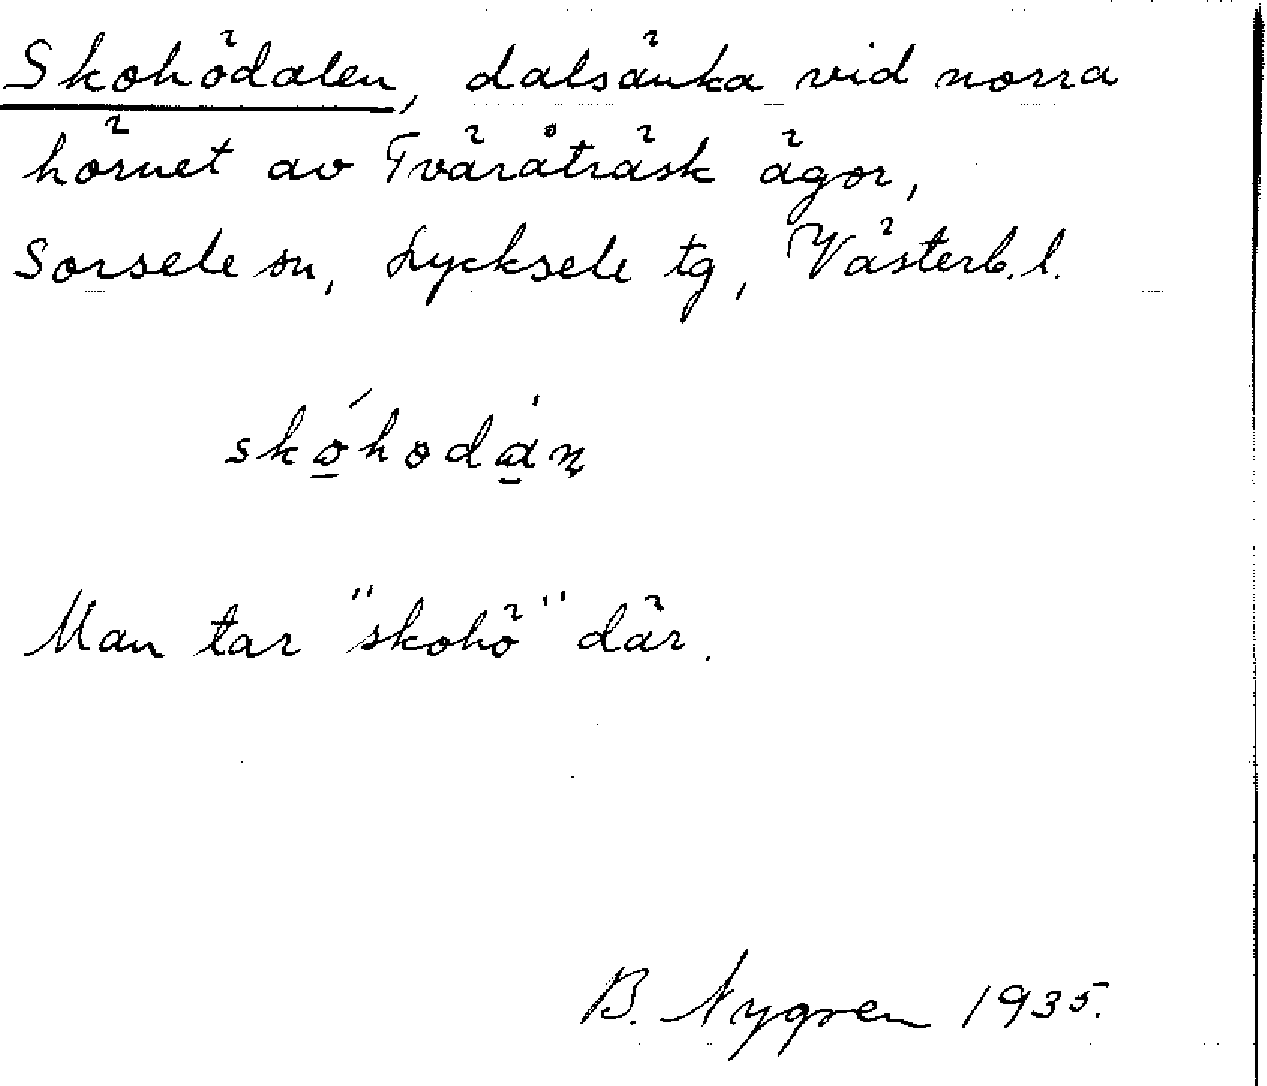 Skohödalen, dalsänka vid norra
hörnet av Tväråträsk ägor,
Sorsele sn, Lycksele tg, Västerb. l.
skóhodán
Man tar "skohö" där.
B. Nygren 1935.